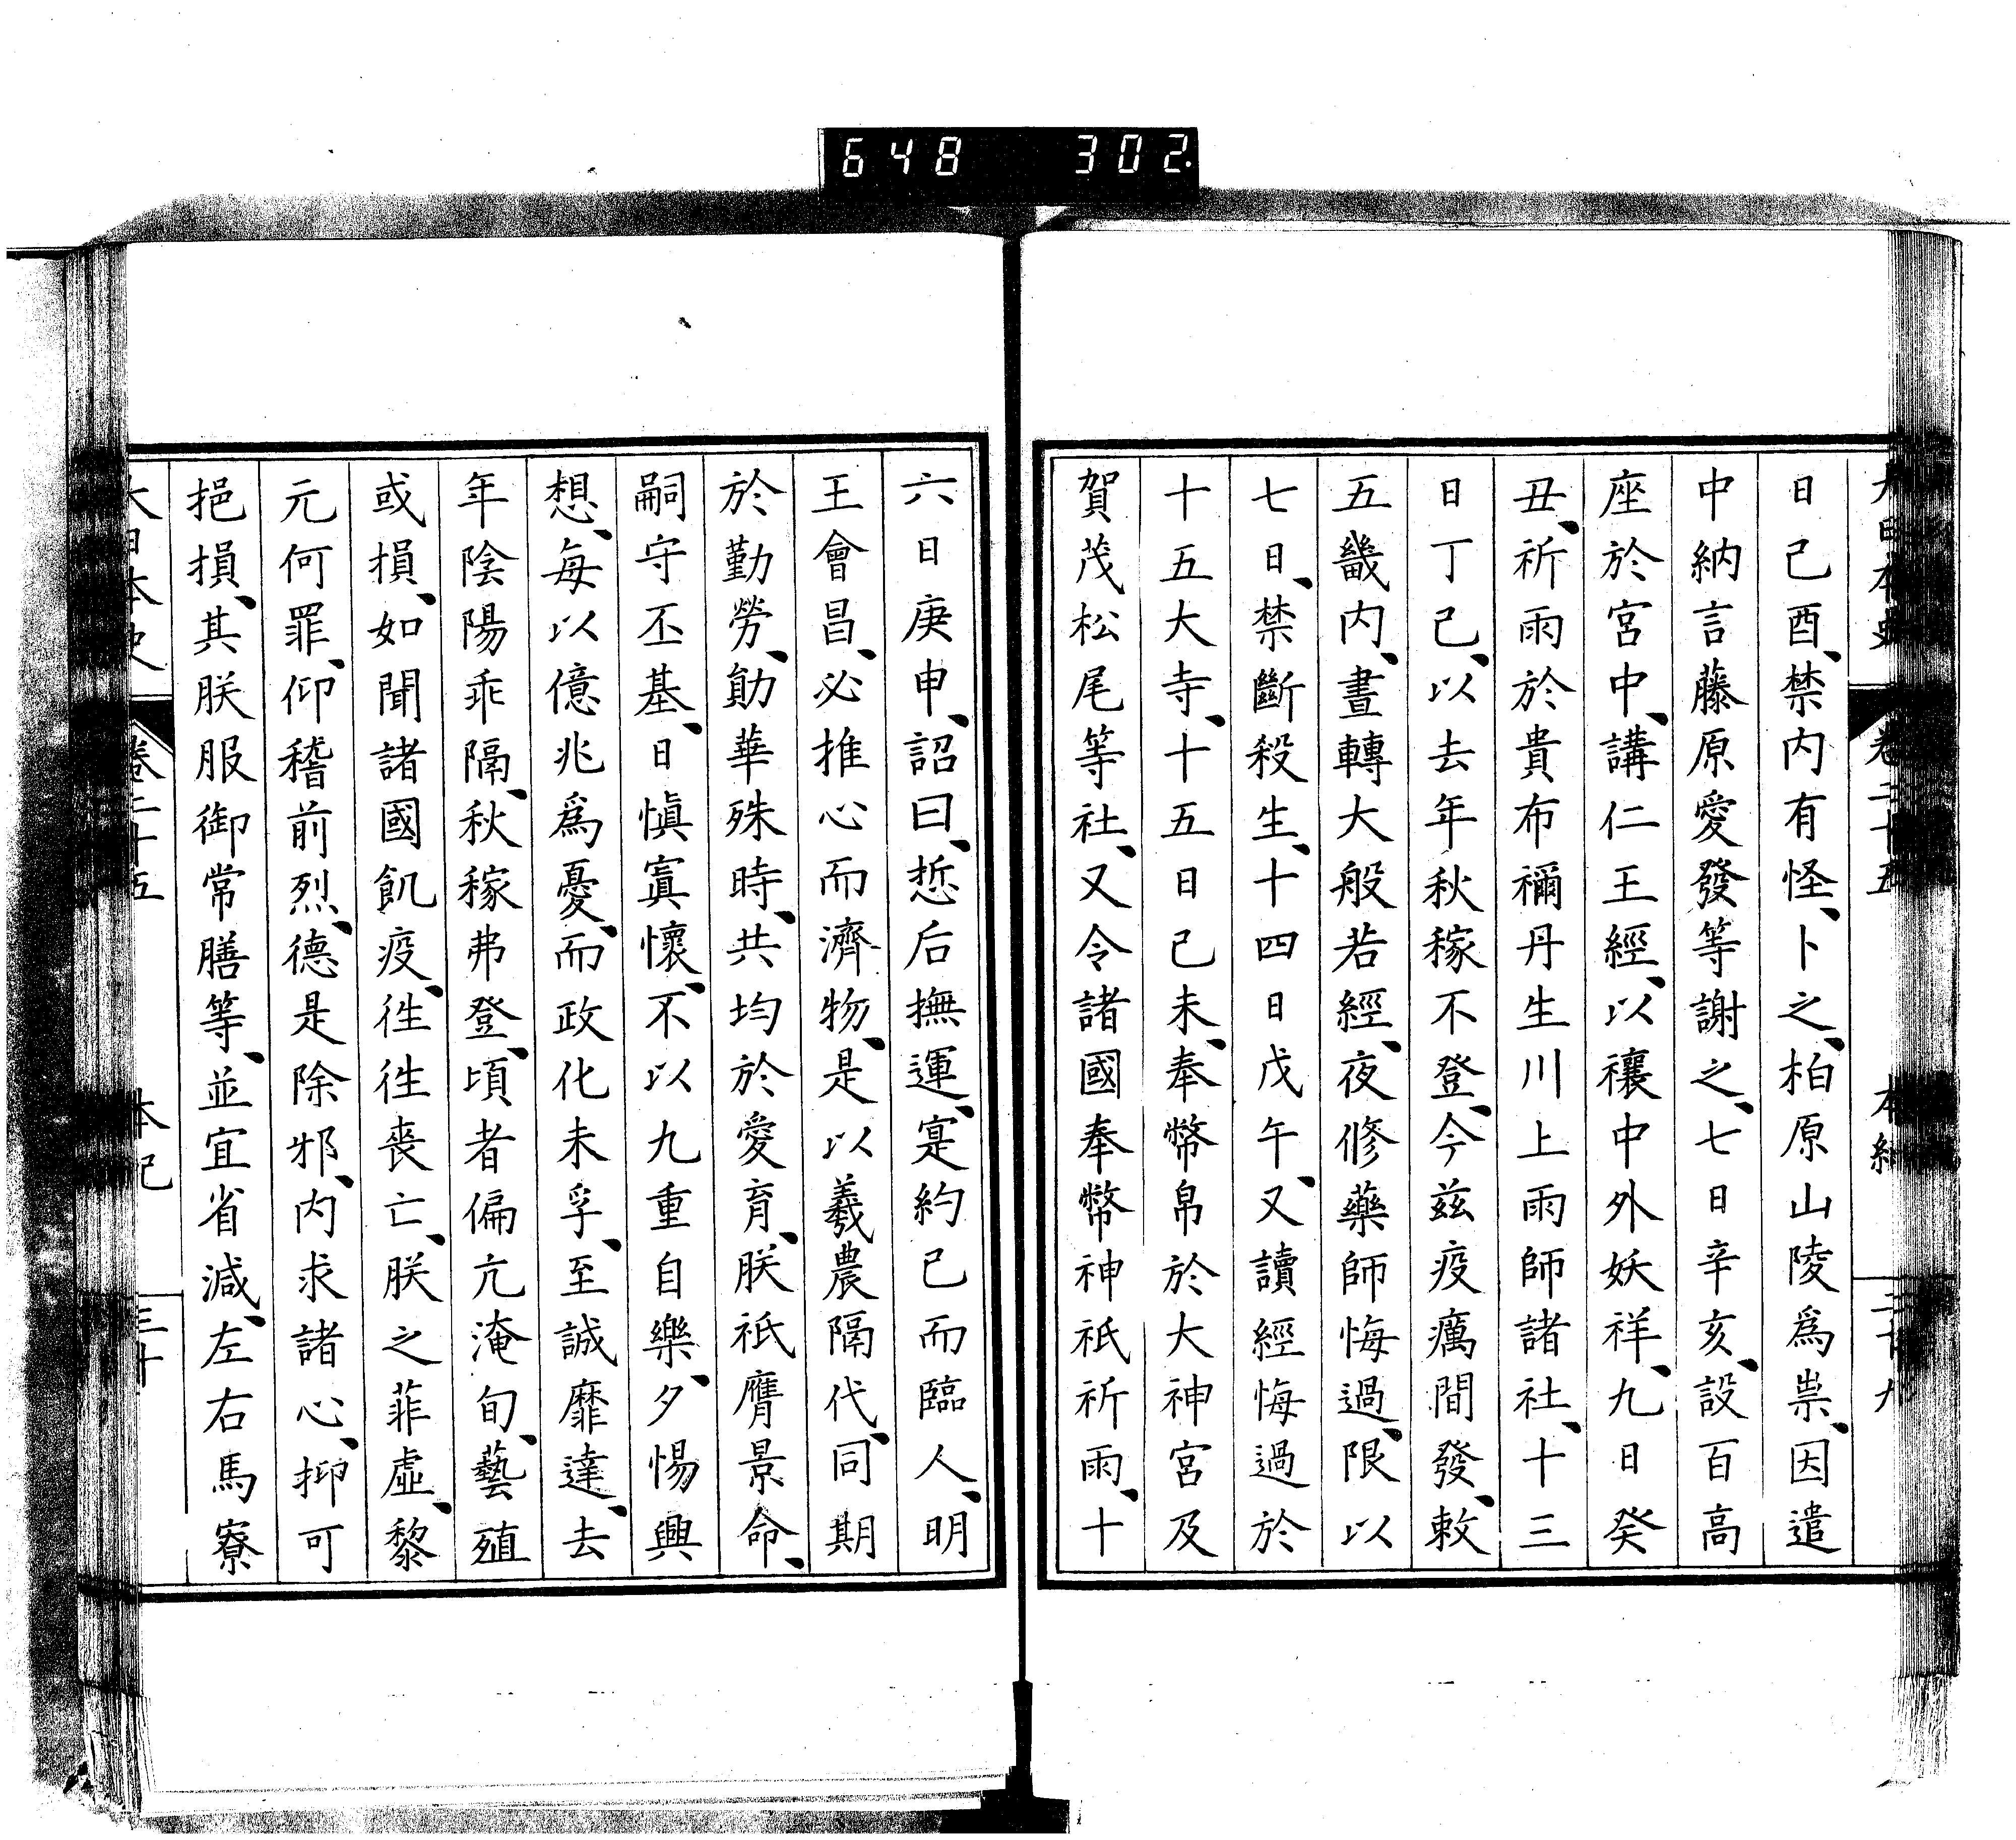 648 302
大日本史 卷二十五 本紀 二十九
日己酉、禁内有怪、卜之、柏原山陵爲祟、因遣
中納言藤原愛發等謝之、七日辛亥、設百高
座於宮中、講仁王經、以禳中外妖祥、九日癸
丑、祈雨於貴布禰丹生川上雨師諸社、十三
日丁己、以去年秋稼不登、今兹疫癘間發、敕
五畿内、晝轉大般若經、夜修藥師悔過、限以
七日、禁斷殺生、十四日戊午、又讀經悔過於
十五大寺、十五日己未、奉幣帛於大神宮及
賀茂松尾等社、又令諸國奉幣神祇祈雨、十
六日庚申、詔曰、悊后撫運、寔約己而臨人、明
王會昌、必推心而濟物、是以羲農隔代、同期
於勤勞、勛華殊時、共均於愛育、朕祇膺景命、
嗣守丕基、日愼寘懷、不以九重自樂、夕惕興
想、每以億兆爲憂、而政化未孚、至誠靡達、去
年陰陽乖隔、秋稼弗登、頃者偏亢淹旬、藝殖
或損、如聞諸國飢疫、徃徃喪亡、朕之菲虛、黎
元何罪、仰稽前烈、德是除邪、内求諸心、抑可
挹損、其朕服御常膳等、並宜省減、左右馬寮
大日本史 卷二十五 本紀 三十